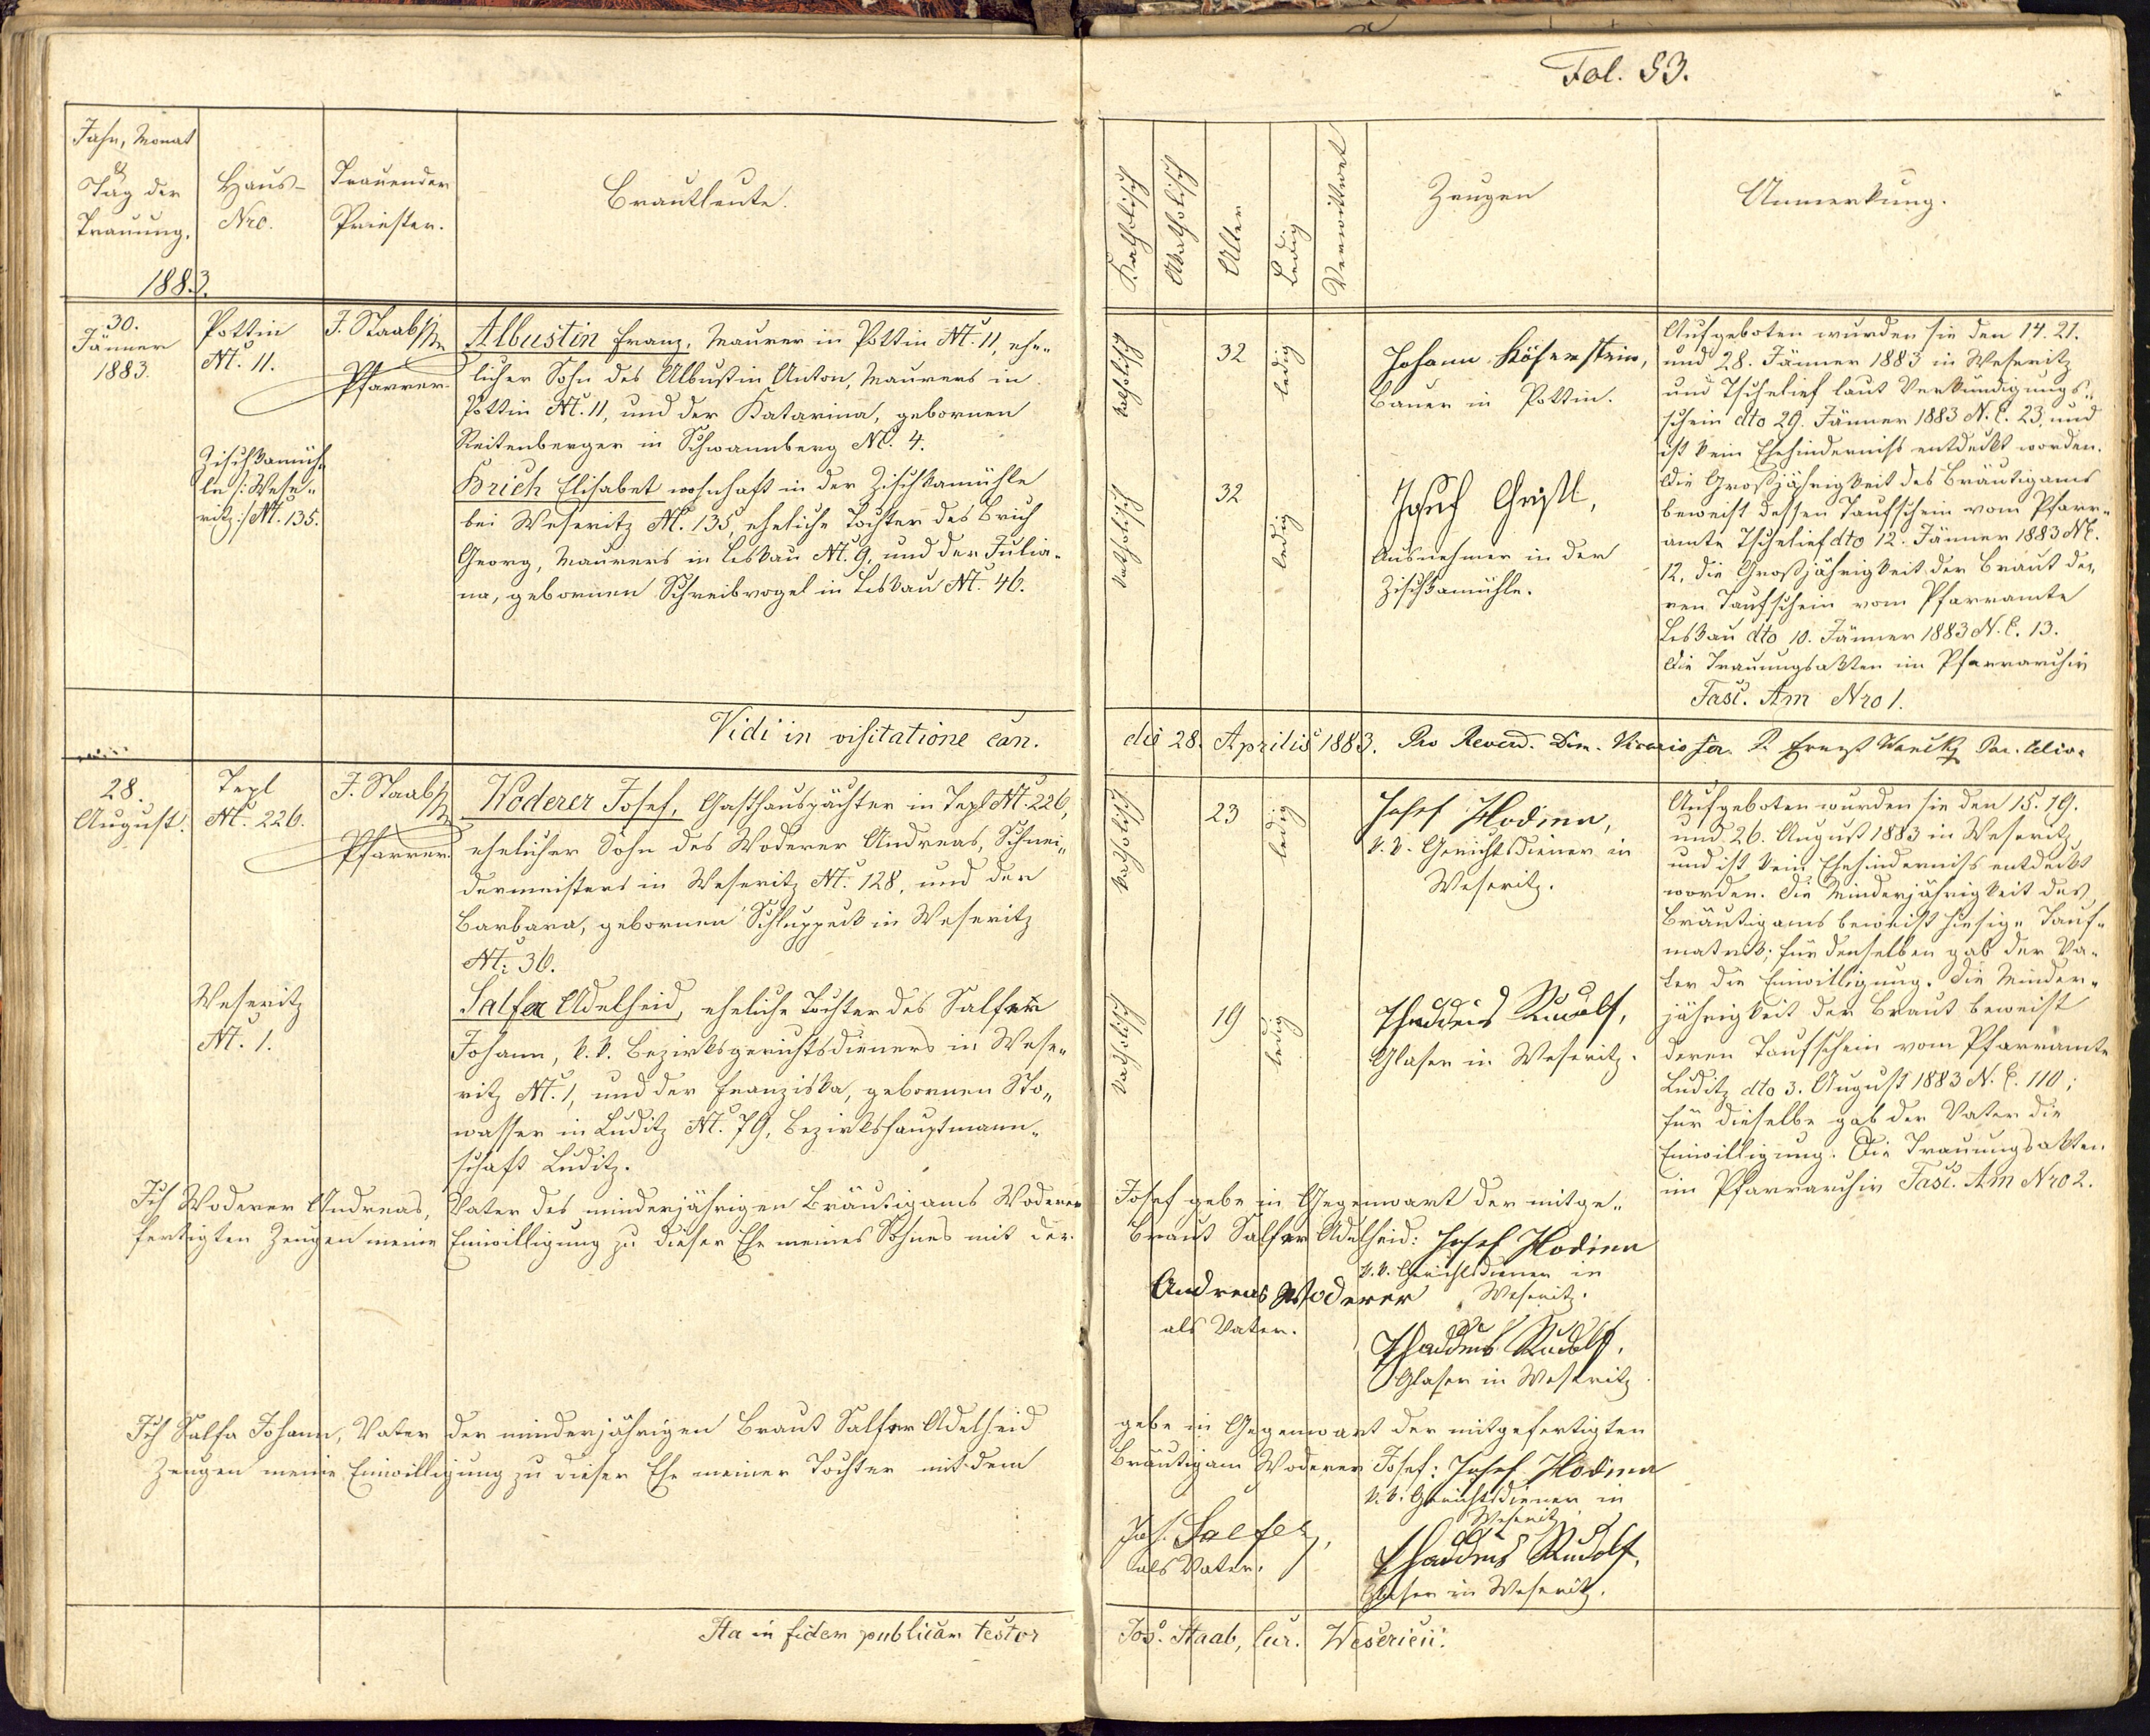 Fol. 53.
Jahr, Monat
&
Tag der
Trauung.
1883.
Haus-
Nro.
Trauender
Priester.
Brautleute.
Katholisch
Akatholisch
Alter
Ledig
Verwittwet
Zeugen
Anmerkung.
30.
Jänner
1883.
Pottin
N. 11.
J. Staab
Pfarrer.
Albustin Franz, Maurer in Pottin N. 11, ehe„
licher Sohn des Albustin Anton, Maurers in
Pottin N. 11, und der Katarina, gebornen
Reitenberger in Schwannberg N. 4.
Zischkamüh„
le /: Wese„
ritz :/ N. 135.
Brich Elisabet wohnhaft in der Zischkamühle
bei Weseritz N. 135, eheliche Tochter des Brich
Georg, Maurers in Leskau N. 9, und der Julia„
na, gebornen Schreibvogel in Leskau N. 46.
katholisch
32
ledig
Johann
Bauer in Pottin.
katholisch
32
ledig
Ausnehmer in der
Zischkamühle.
Aufgeboten wurden sie den 14. 21.
und 28. Jänner 1883 in Weseritz
und Tschelief laut Verkündigungs„
schein dto 29. Jänner 1883 N. E. 23, und
ist kein Ehehinderniss entdeckt worden.
Die Großjährigkeit des Bräutigams
beweist dessen Taufschein vom Pfarr„
amte Tschelief dto 12. Jänner 1883 N.
12, die Großjährigkeit der Braut de„
ren Taufschein vom Pfarramte
Leskau dto 10. Jänner 1883 N. E. 13.
Die Trauungsakten im Pfarrarchiv
Fasc. Am Nro 1.
Vidi in visitatione can. die 28. Aprilis 1883. Pro Reverd. Dom. Vicario for. P. Ernest
28.
August.
Tepl
N. 226.
J. Staab
Pfarrer.
Woderer Josef, Gasthauspächter in Tepl N. 226,
ehelicher Sohn des Woderer Andreas, Schnei„
dermeisters in Weseritz N. 128, und der
Barbara, gebornen Schluppeck in Weseritz
N. 36.
Weseritz
N. 1.
Salfer Adelheid, eheliche Tochter des Salfer
Johann, k. k. Bezirksgerichtsdieners in Wese„
ritz N. 1, und der Franziska, gebornen Sto„
wasser in Luditz N. 79, Bezirkshauptmann„
schaft Luditz.
katholisch
23
ledig
Josef Hodina,
k. k. Gerichtsdiener in
Weseritz.
katholisch
19
ledig
Thaddeus Rudolf,
Glaser in Weseritz.
Aufgeboten wurden sie den 15. 19.
und 26. August 1883 in Weseritz
und ist kein Ehehinderniss entdeckt
worden. Die Minderjährigkeit des
Bräutigams beweist hiesige Tauf„
matrik; für denselben gab der Va„
ter die Einwilligung. Die Minder„
jährigkeit der Braut beweist
deren Taufschein vom Pfarramte
Luditz dto 3. August 1883 N. E. 110;
für dieselbe gab der Vater die
Einwilligung. Die Trauungsakten
im Pfarrarchiv Fasc. Am Nro 2.
Ich Woderer Andreas, Vater des minderjährigen Bräutigams Woderer Josef gebe in Gegenwart der mitge„
fertigten Zeugen meine Einwilligung zu dieser Ehe meines Sohnes mit der Braut Salfer Adelheid: Josef Hodina
k. k. Gerichtsdiener in
Weseritz.
Andreas Woderer
als Vater.
Thaddeus Rudolf,
Glaser in Weseritz.
Ich Salfa Johann, Vater der minderjährigen Braut Salfer Adelheid gebe in Gegenwart der mitgefertigten
Zeugen meine Einwilligung zu dieser Ehe meiner Tochter mit dem Bräutigam Woderer Josef: Josef Hodina
k. k. Gerichtsdiener in
Weseritz
Joh. Salfer,
als Vater.
Thaddeus Rudolf,
Glaser in Weseritz.
Ita in fidem publicam testor Jos. Staab, Cur. Wesericii.